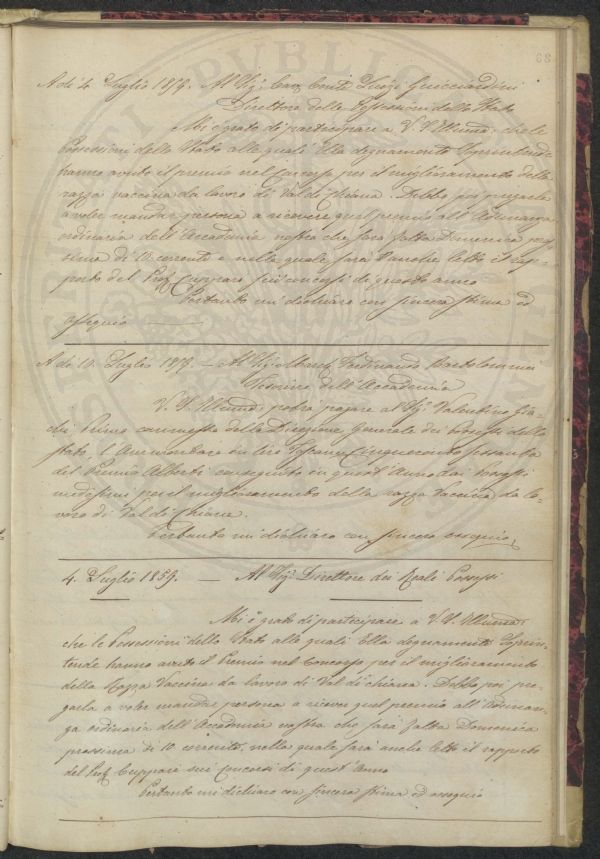 68
A dì 4 Luglio 1859. Al Sig. Cav. Conte Luigi Guicciardini
Direttore delle Possessioni dello Stato
Mi è grato di partecipare a V. S. Illuma. che le
Possessioni dello Stato alle quali Ella degnamente Soprintende
hanno avuto il premio nel concorso per il miglioramento della
razza vaccina da lavoro di Val di Chiana. Debbo poi pregarla
a voler mandar persona a ricevere quel premio all'Adunanza
ordinaria dell'Accademia nostra che sarà fatta Domenica pros-
sima di 10 corrente e nella quale sarà anche letto il rap-
porto del Prof. Cuppari sui concorsi di questo anno
Pertanto mi dichiaro con sincera stima ed
ossequio
A dì 10. Luglio 1859. — Al Sig. March. Ferdinando Bartolommei
Tesoriere dell'Accademia
V. S. Illuma. potrà pagare al Sig. Valentino
chi Primo commesso della Direzione Generale dei Possessi dello
Stato, l'Ammontare in lire Toscane Cinquecento sessanta
del Premio Alberti conseguito in quest'Anno dai Possessi
medesimi per il miglioramento della razza Vaccina da la-
voro di Val di Chiana.
Pertanto mi dichiaro con sincero ossequio
4. Luglio 1859. — Al Sig. Direttore dei Reali Possessi
Mi è grato di partecipare a V. S. Illuma.
che le Possessioni dello Stato alle quali Ella degnamente Soprin-
tende hanno avuto il Premio nel Concorso per il miglioramento
della Razza Vaccina da lavoro di Val di Chiana. Debbo poi pre-
garla a voler mandar persona a ricever quel premio all'Adunan-
za ordinaria dell'Accademia nostra che sarà fatta Domenica
prossima di 10 corrente, nella quale sarà anche letto il rapporto
del Prof. Cuppari sui concorsi di quest'Anno
Pertanto mi dichiaro con sincera stima ed ossequio